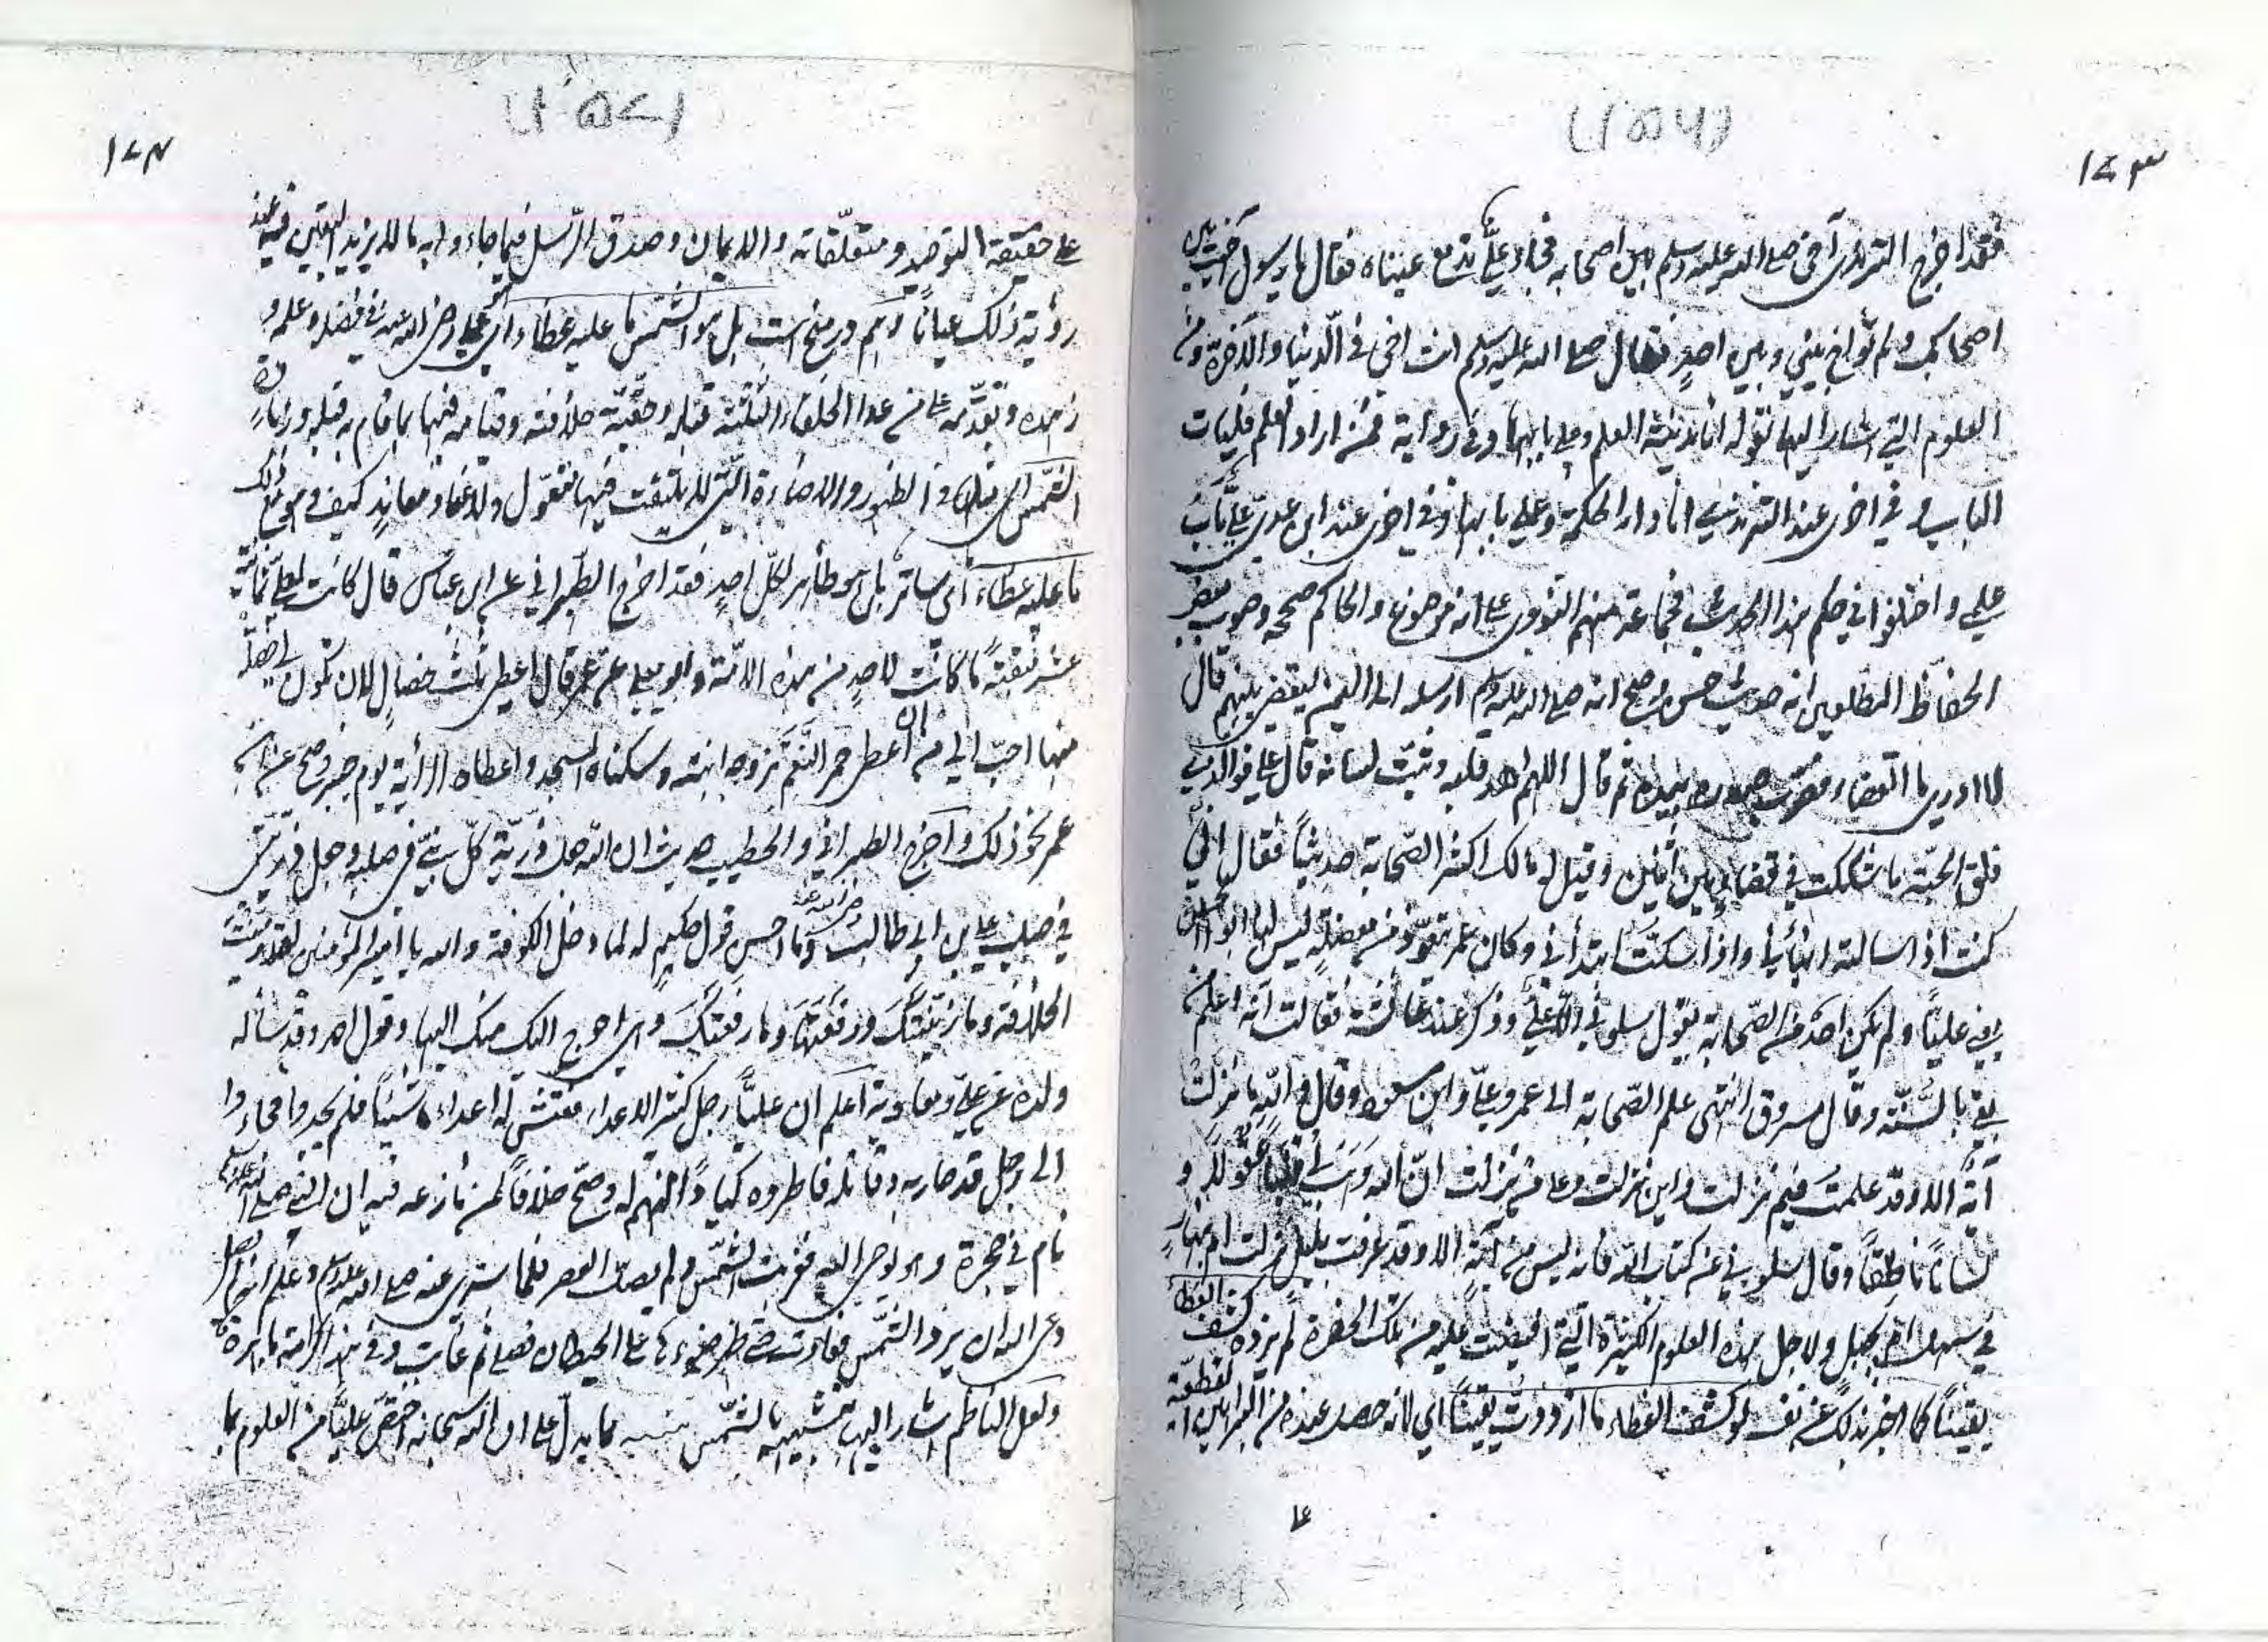 (۱۵۶)
۱۷۳
فقد اخرج الترمذى آخى صلى الله عليه وسلم بين اصحابه فجاء علىّ تدمع عيناه فقال يا رسول آخيت بين
اصحابك ولم تواخ بينى وبين احدٍ فقال صلى الله عليه وسلم انت اخى فى الدنيا والآخرة ومن
العلوم التى اشار اليها بقوله انا مدينة العلم وعلى بابها وفى رواية فمن اراد العلم فليات
الباب وفى اخرى عند الترمذى انا دار الحكمة وعلى بابها وفى اخرى عند ابن عدى علىّ باب
علمى واختلفوا فى حكم هذا الحديث فجماعة منهم النووى على انه موضوع والحاكم صححه وصوب بعض
الحفاظ المطلعين انه حديث حسن وصح انه صلى الله عليه وسلم ارسله الى اليمن ليقضى بينهم قال
لا ادرى ما القضاء فضرب صدره بيده ثم قال اللهم اهد قلبه وثبت لسانه قال على فوالذى
فلق الحبة ما شككت فى قضاء بين اثنين وقيل له مالك اكثر الصحابة حديثاً فقال انى
كنت اذا سالته انبأنى واذا سكتّ ابتدأنى وكان عمر يتعوّذ من معضلة ليس لها ابو الحسن
يعنى عليّاً ولم يكن احد من الصحابة يقول سلونى الا علىّ وذكر عند عائشة فقالت انه اعلم من
بقى بالسنّة وقال مسروق انتهى علم الصحابة الى عمر وعلىّ وابن مسعود وقال والله ما نزلت
آية الا وقد علمت فيم نزلت واين نزلت وعلى من نزلت انّ الله وهب لى قلباً عقولا و
لساناً ناطقاً وقال سلونى عن كتاب الله فانه ليس من آية الا وقد عرفت بليل نزلت ام بنهارٍ
فى سهل ام بجبل ولاجل هذه العلوم الكثيرة التى افيضت عليه من تلك الحضرة لم يزده كشف الغطاء
يقيناً كما اخبر بذلك عن نفسه لو كشف الغطاء ما ازددت يقيناً اى لانه حصل عنده من البراهين القطعيّة
على
(۱۵۷)
۱۷۴
على حقيقة التوحيد ومتعلّقاته والايمان وصدق الرّسل فيما جاءوا به ما لا يزيد اليقين فيه عند
رؤية ذلك عياناً بل هو الشمس ما عليه غطاء اى علىّ رضى الله عنه فى فضله وعلمه و
زهده وتقدّمه على من عدا الخلفاء الثلثة قبله وحقّيّة خلافته وقيامه فيها بما قام به قبله
الشمس فى الظهور والاضاءة التى لا يلتفت فيها لتقوّل معاندٍ كيف وهو مع ذلك
ما عليه غطاء اى ساتر بل هو ظاهر لكلّ احدٍ فقد اخرج الطبرانى عن ابن عباس قال كانت لعلىّ ثمانية
عشر منقبةً ما كانت لاحدٍ من هذه الامّة وابو يعلى عن عمر قال اعطى ثلث خصالٍ لان تكون لى خصلة
منها احبّ الىّ من ان اعطى حمر النّعم تزوجه ابنته وسكناه المسجد واعطاه الرأية يوم خيبر وصح عن ابن
عمر نحو ذلك واخرج الطبرانى والخطيب حديث ان الله جعل ذرّيّة كلّ نبىّ فى صلبه وجعل ذريتى
فى صلب على بن ابى طالب رضى الله عنه وما احسن قول حكيمٍ له لما دخل الكوفة والله يا امير المؤمنين لقد زينت
الخلافة وما زيّنتك ورفعتها وما رفعتك وهى احوج اليك منك اليها وقول احمد وقد سأله
ولده عن علىّ ومعاوية اعلم ان عليّاً رجل كثير الاعداء ففتش له اعداءه شيئاً فلم يجدوا فجاءوا
الى رجل قد حاربه وقاتله فاطروه كياداً منهم له وصحّ خلافاً لمن نازع فيه ان النبى صلى الله عليه وسلم
نام فى حجره وهو يوحى اليه فغربت الشمس ولم يصلّ العصر فلما سرى عنه صلى الله عليه وسلم وعلم انه لم يصل
دعى الله ان يردّ الشمس فعادت حتى ظهر ضوءها على الحيطان فصلى ثم غابت وفى هذا كرامة باهرة له
ولعل الناظم اشار اليها بتشبيهه بالشمس تنبيه مما يدلّ على ان الله سبحانه اختصّ عليّاً من العلوم بما